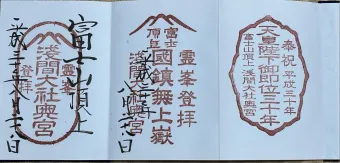 奉祝 平成三十年
天皇陛下御即位三十年
富士山頂上 浅間大社奥宮
霊峯登拝
富士
國鎮無上嶽
浅間大社奥宮
平成三十年
富士山頂上
霊峯
浅間大社奥宮
登拝
平成三十年八月